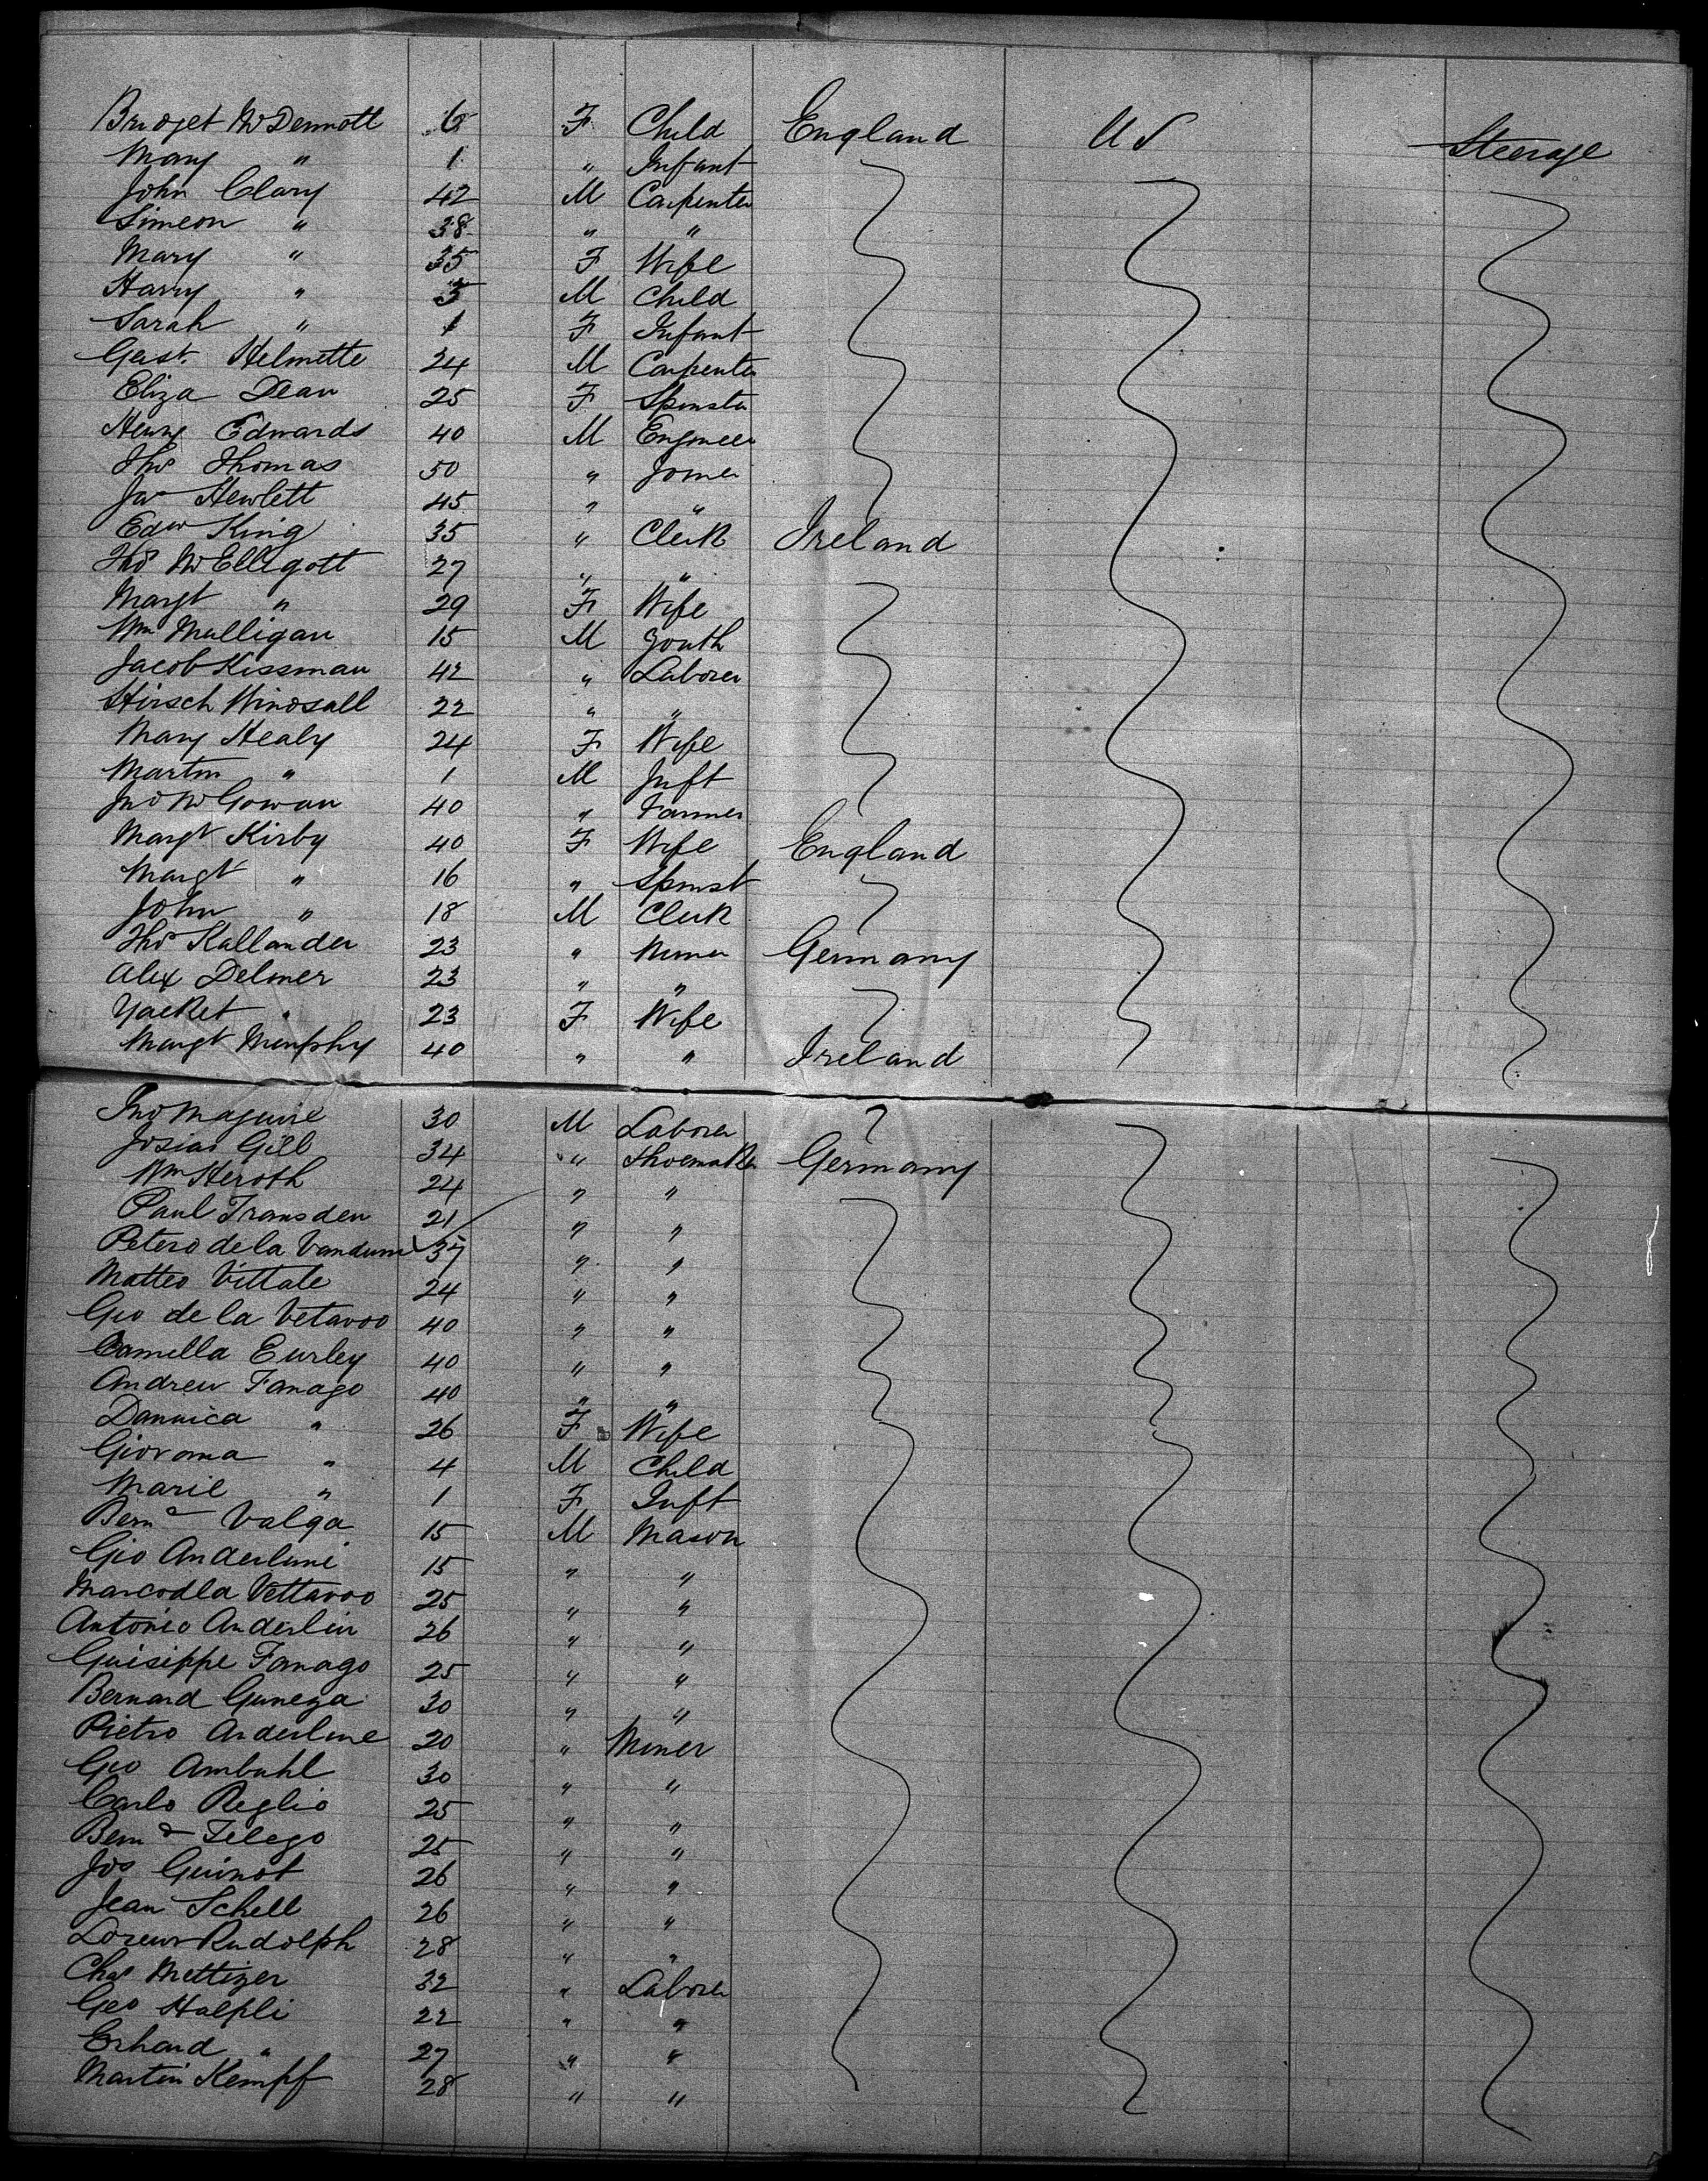 Bridget McDermott 6 F Child England US Steerage
Mary " 1 " Infant
John Clary 42 M Carpenter
Simeon " 38 " "
Mary " 35 F Wife
Harry " 3 M Child
Sarah " 1 F Infant
Gust. Helmette 24 M Carpenter
Eliza Dean 25 F Spinster
Henry Edwards 40 M Engineer
Thos Thomas 50 " Joiner
Jas Hewlett 45 " "
Edw King 35 " Clerk Ireland
Thos McElligott 27 " "
Margt " 29 F Wife
Wm Mulligan 15 M Youth
Jacob Kissman 42 " Laborer
Hirsch Windsall 22 " "
Mary Healy 24 F Wife
Martin " 1 M Inft
Jno McGowan 40 " Farmer
Margt Kirby 40 F Wife England
Margt " 16 " Spinst
John " 18 M Clerk
Thos Kallander 23 " Miner Germany
Alex Delmer 23 " "
Yacket " 23 F Wife
Margt Murphy 40 " " Ireland
Jno Maguire 30 M Laborer
Josias Gill 34 " Shoemaker Germany
Wm Heroth 24 " "
Paul Transden 21 " "
Petero de la Vandume 37 " "
Matteo Vittale 24 " "
Gio de la Vetavoo 40 " "
Camella Eurley 40 " "
Andrew Fanago 40 " "
Dannica " 26 F Wife
Giovoma " 4 M Child
Marie " 1 F Inft
Bernd Valga 15 M Mason
Gio Anderlini 15 " "
Marcodla Vettavoo 25 " "
Antonio Anderlin 26 " "
Guisippe Fanago 25 " "
Bernard Guneza 30 " "
Pietro Anderline 20 " Miner
Geo Ambuhl 30 " "
Carlo Reglio 25 " "
Bernd Felego 25 " "
Jos Guinot 26 " "
Jean Schell 26 " "
Lorenz Rudolph 28 " "
Chas Mettizer 32 " Laborer
Geo Halpli 22 " "
Erhard " 27 " "
Martin Kempf 28 " "